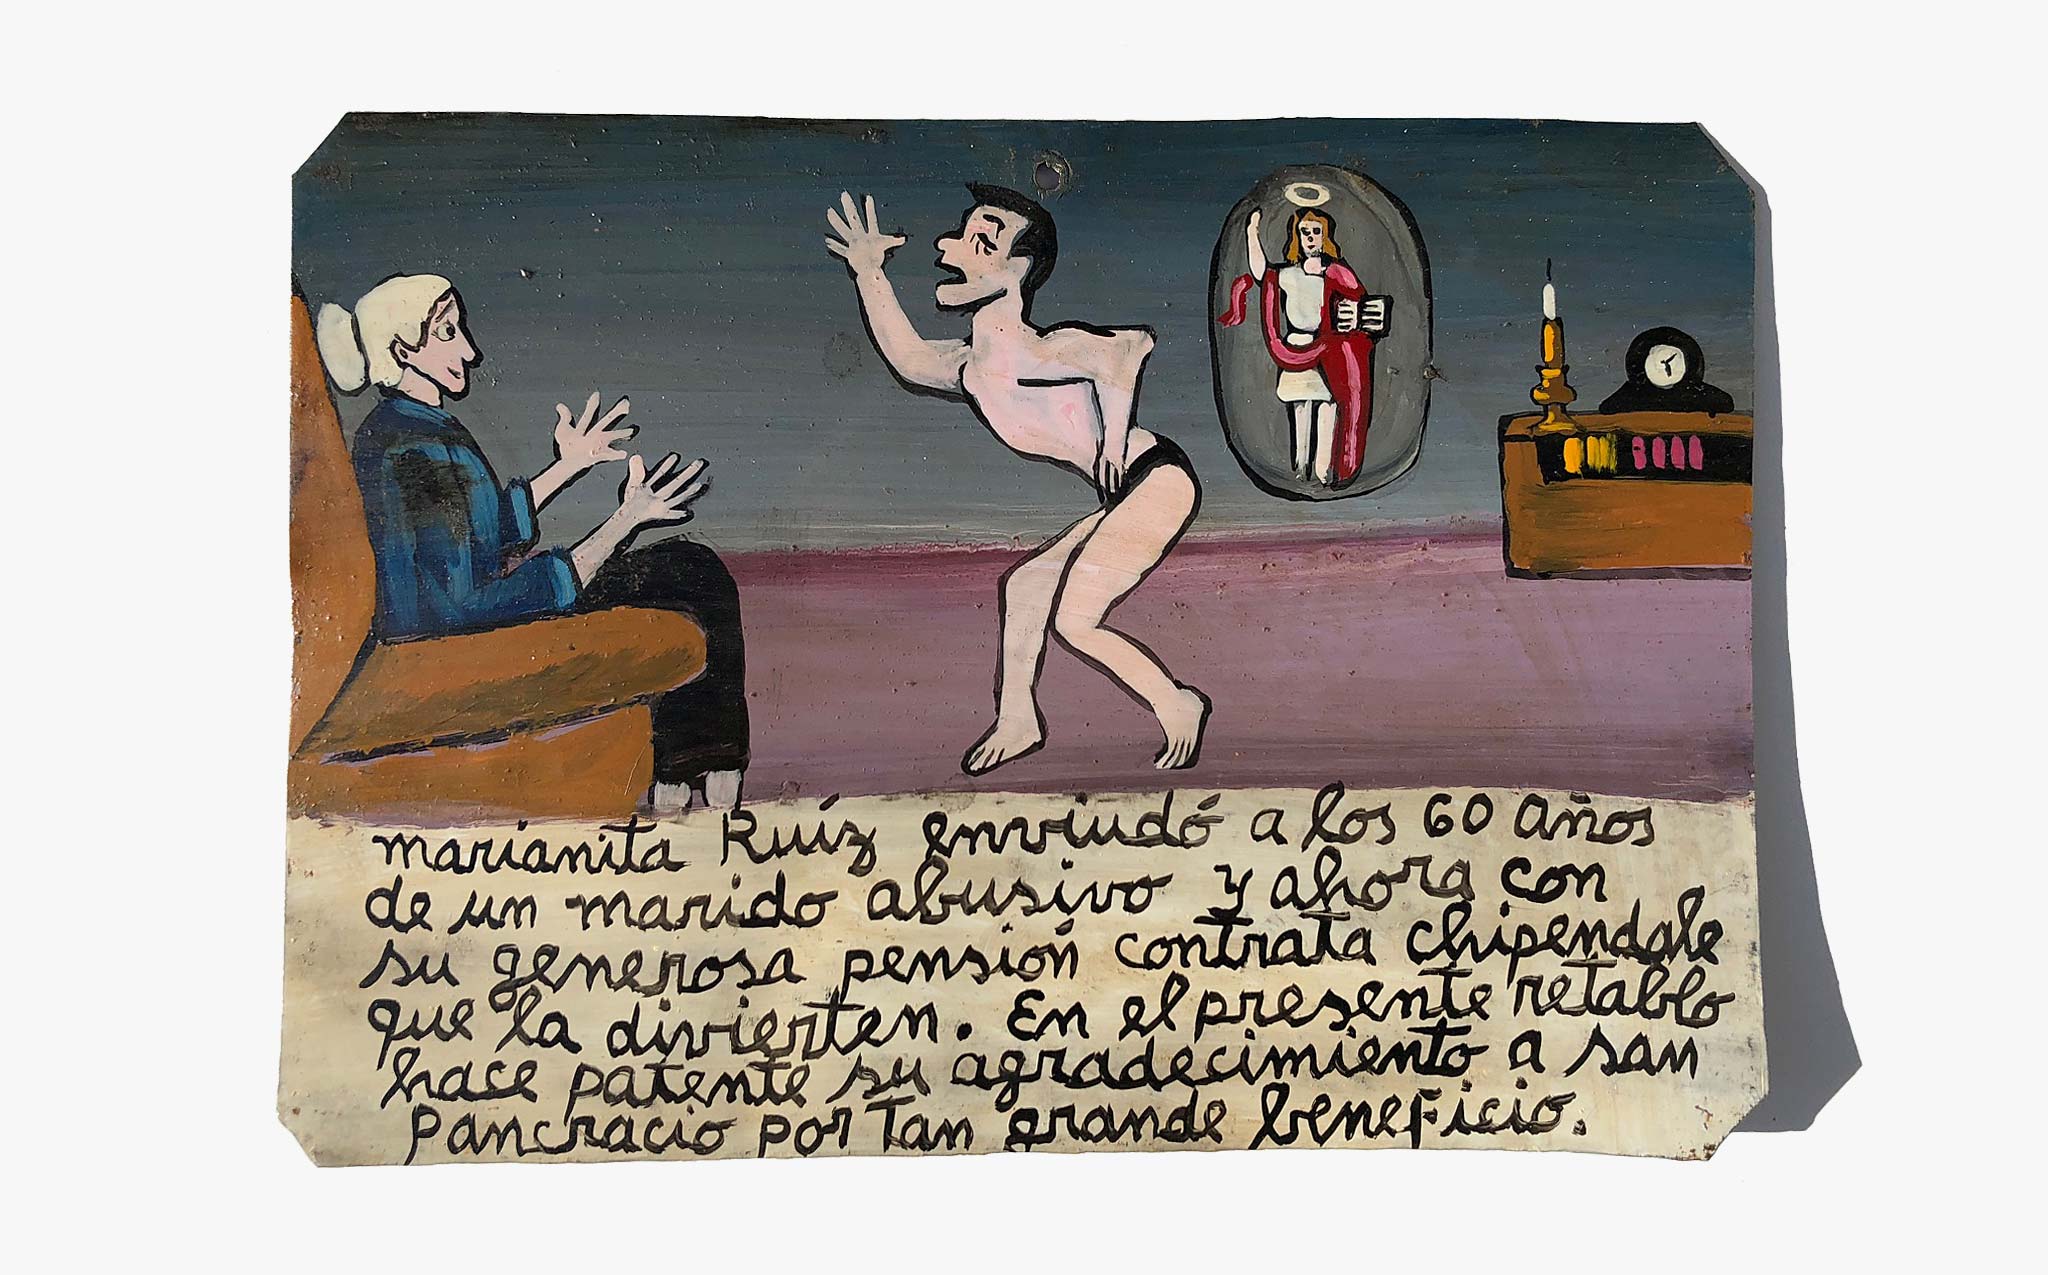 marianita Ruíz enviudó a los 60 años
de un marido abusivo y ahora con
su generosa pensión contrata chipendale
que la divierten. En el presente retablo
hace patente su agradecimiento a san
Pancracio por tan grande beneficio.